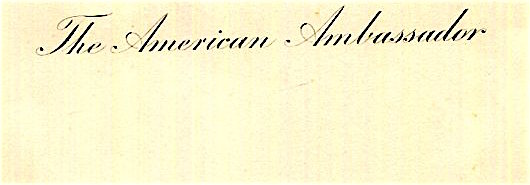 The American Ambassador